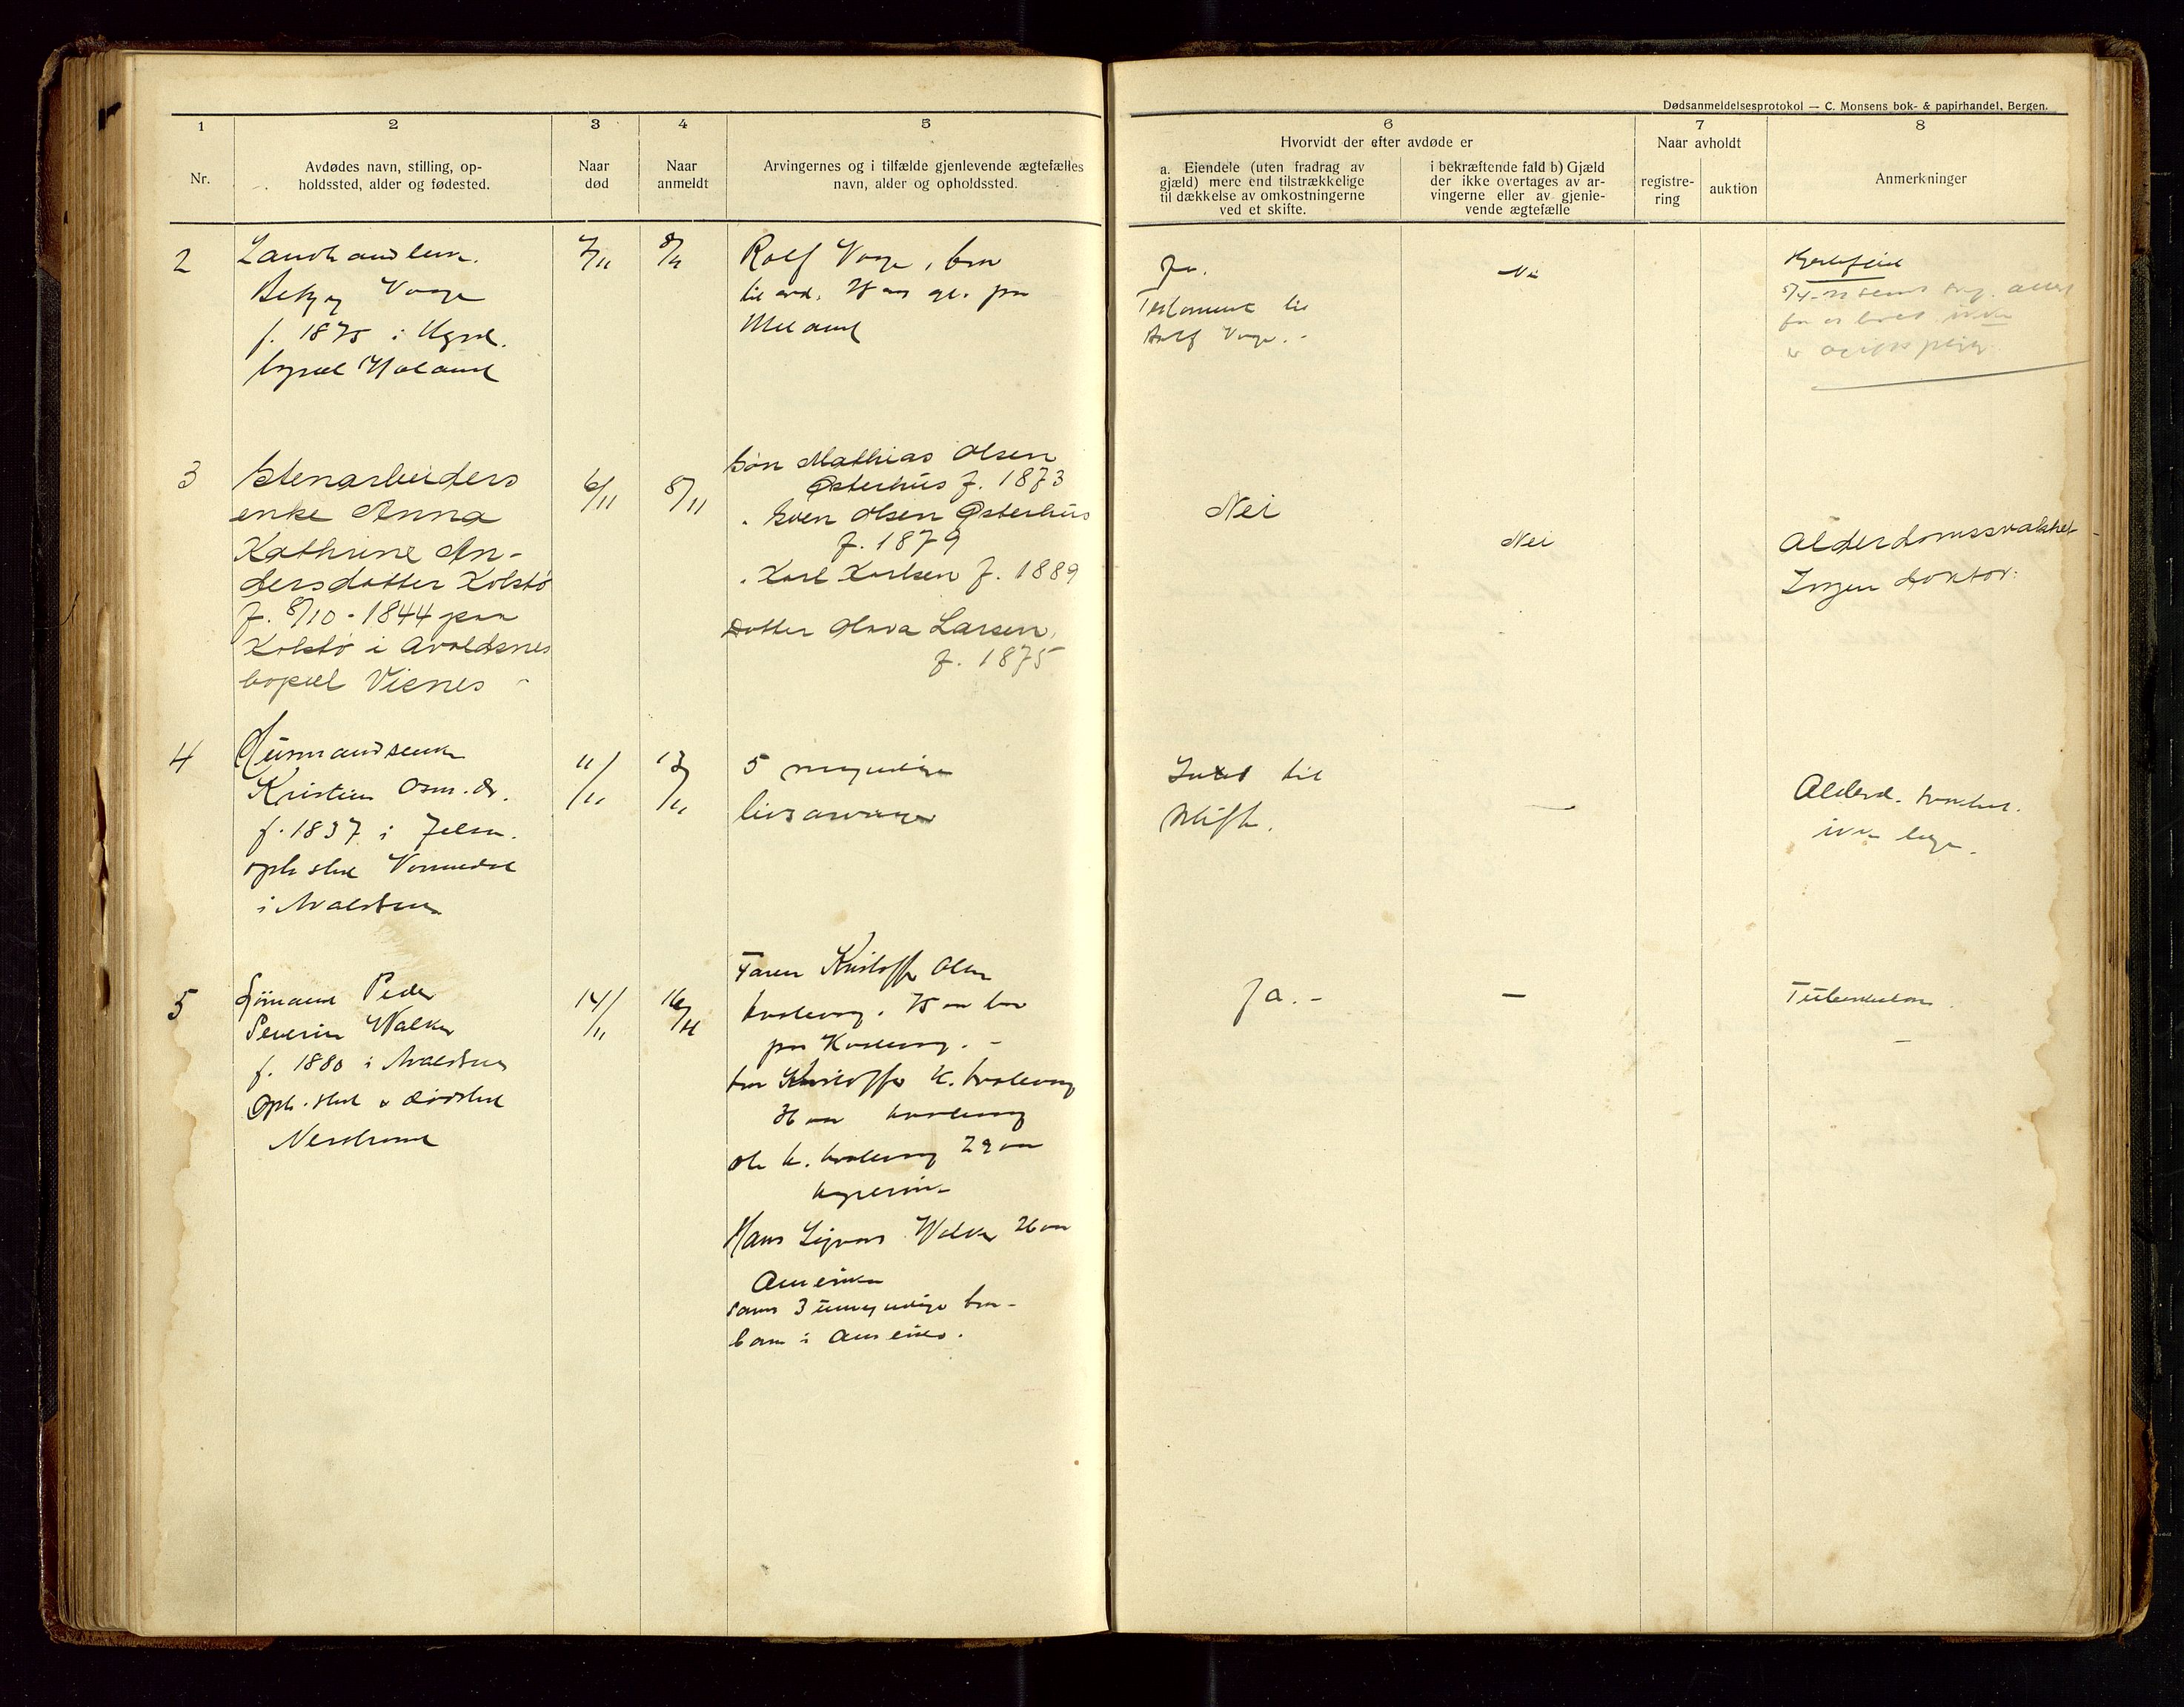 Dødsanmeldelsesprotokol — C. Monsens bok- & papirhandel, Bergen.
1
2
3
4
5
6
7
8
Nr.
Avdødes navn, stilling, op-
holdssted, alder og fødested.
Naar
død
Naar
anmeldt
Arvingernes og i tilfælde gjenlevende ægtefælles
navn, alder og opholdssted.
Hvorvidt der efter avdøde er
a. Eiendele (uten fradrag av
gjæld) mere end tilstrækkelige
til dækkelse av omkostningerne
ved et skifte.
i bekræftende fald b) Gjæld
der ikke overtages av ar-
vingerne eller av gjenle-
vende ægtefælle
Naar avholdt
registre-
ring
auktion
Anmerkninger
2
Landhandlerske
Vaage
f. 1875 i
bopæl
7/11
8/11
Rolf Vaage, bror
til avd.
Ja.
Testament til
Rolf Vaage. -
Nei
Hjertefeil
3
Stenarbeiders
enke Anna
Kathrine An-
dersdatter Kolstø
f. 8/10 - 1844 paa
Kolstø i Avaldsnes
bopæl Visnes -
6/11
8/11
Søn Mathias Olsen
Østerhus f. 1873
" Sven Olsen Østerhus
f. 1879
" Karl Karlsen f. 1889
Datter Olava Larsen,
f. 1875
Nei
Nei
Alderdomssvakhet -
Ingen doktor.
4
Husmandsenke
Kristine Osm. dr.
f. 1837 i Jelsa.
oph. sted
i Avaldsnes
11/11
13/11
5 myndige
livsarvinger
Intet til
skifte.
—
Alderd. svakhet.
ikke læge.
5
Sjømand Peder
Severin Walker
f. 1880 i Avaldsnes
Oph. sted & dødssted
Nerstrand
14/11
16/11
Faren Kristoffer Olsen
Kvalevaag, 75 aar bor
paa Kvalevaag. -
bror Kristoffer K. Kvalevaag
36 aar Kvalevaag
Ole K. Kvalevaag 29 aar
Hans Sigvart Walker 26 aar
Amerika
samt 3 umyndige bror-
barn i Amerika.
Ja. -
—
Tuberkulose
—